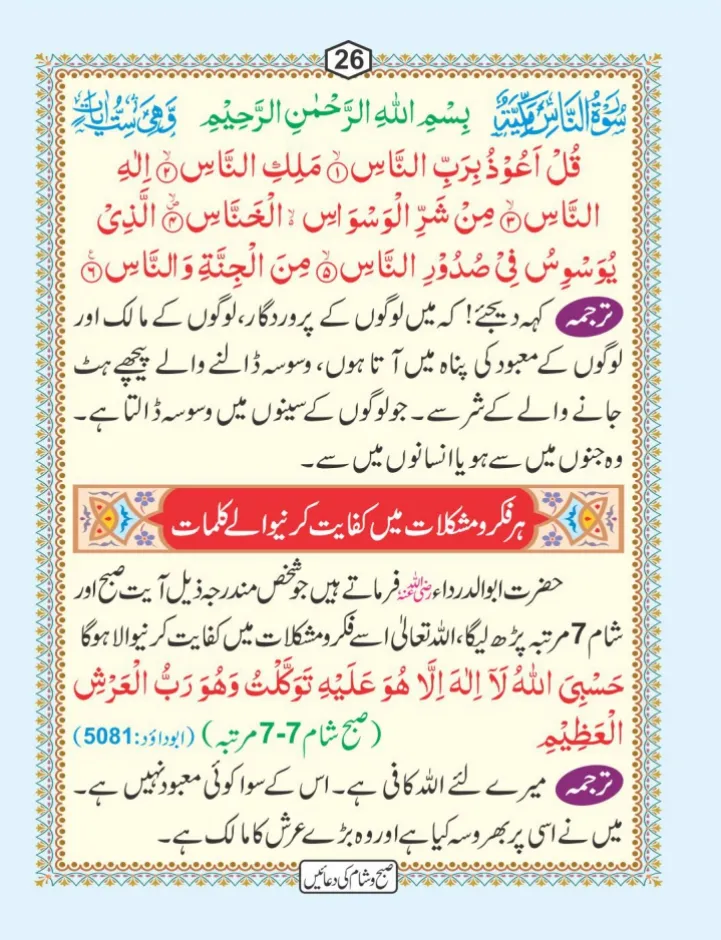 26
سُوْرَةُ النَّاسِ مَكِّيَّةٌ بِسْمِ اللهِ الرَّحْمٰنِ الرَّحِيْمِ وَّهِىَ سِتُّ اٰيَاتٍ
قُلْ اَعُوْذُ بِرَبِّ النَّاسِ ۙ﴿۱﴾ مَلِكِ النَّاسِ ۙ﴿۲﴾ اِلٰهِ
النَّاسِ ۙ﴿۳﴾ مِنْ شَرِّ الْوَسْوَاسِ ۙ الْخَنَّاسِ ۪ۙ﴿۴﴾ الَّذِىْ
يُوَسْوِسُ فِىْ صُدُوْرِ النَّاسِ ۙ﴿۵﴾ مِنَ الْجِنَّةِ وَالنَّاسِ ﴿۶﴾
ترجمہ کہہ دیجئے! کہ میں لوگوں کے پروردگار، لوگوں کے مالک اور
لوگوں کے معبود کی پناہ میں آتا ہوں، وسوسہ ڈالنے والے پیچھے ہٹ
جانے والے کے شر سے۔ جو لوگوں کے سینوں میں وسوسہ ڈالتا ہے۔
وہ جنوں میں سے ہو یا انسانوں میں سے۔
ہر فکر و مشکلات میں کفایت کرنیوالے کلمات
حضرت ابوالدرداء رضی اللہ عنہ فرماتے ہیں جو شخص مندرجہ ذیل آیت صبح اور
شام 7 مرتبہ پڑھ لیگا، اللہ تعالیٰ اسے فکر و مشکلات میں کفایت کرنیوالا ہوگا
حَسْبِىَ اللهُ لَآ اِلٰهَ اِلَّا هُوَ عَلَيْهِ تَوَكَّلْتُ وَهُوَ رَبُّ الْعَرْشِ
الْعَظِيْمِ (صبح شام 7-7 مرتبہ) (ابوداؤد: 5081)
ترجمہ میرے لئے اللہ کافی ہے۔ اس کے سوا کوئی معبود نہیں ہے۔
میں نے اسی پر بھروسہ کیا ہے اور وہ بڑے عرش کا مالک ہے۔
صبح و شام کی دعائیں